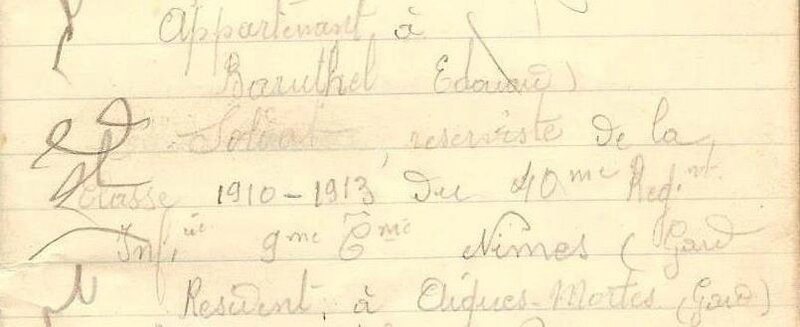 Appartenant à
Baruthel Edouard
Soldat, reserviste de la
Classe 1910-1913 du 40me Regi.nt
Inf.ie 9me Cme Nimes (Gard
Resident à Aigues-Mortes (Gard)